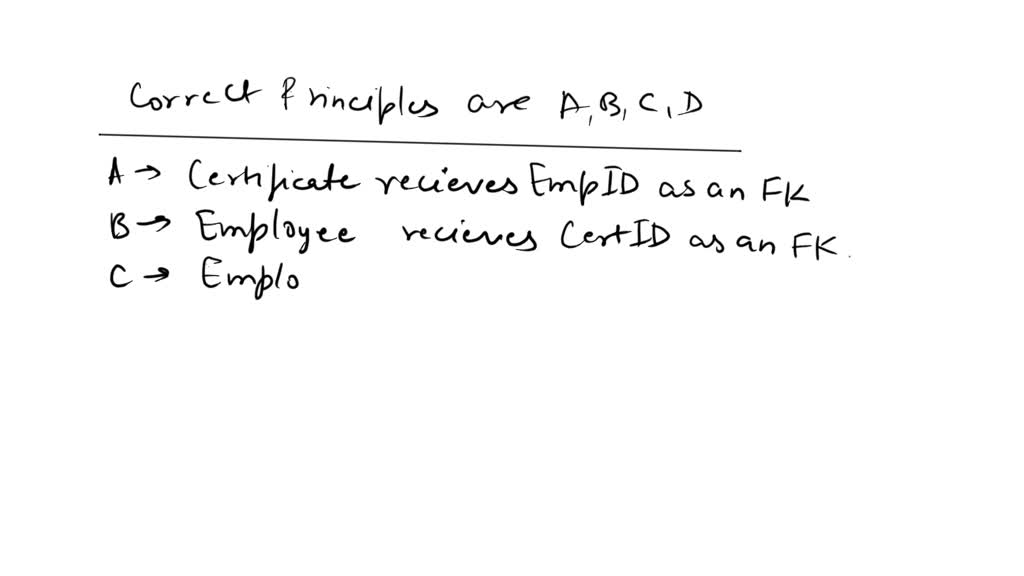 Correct Principles are A, B, C, D
A → Certificate recieves EmpID as an FK
B → Employee recieves CertID as an FK.
C → Emplo